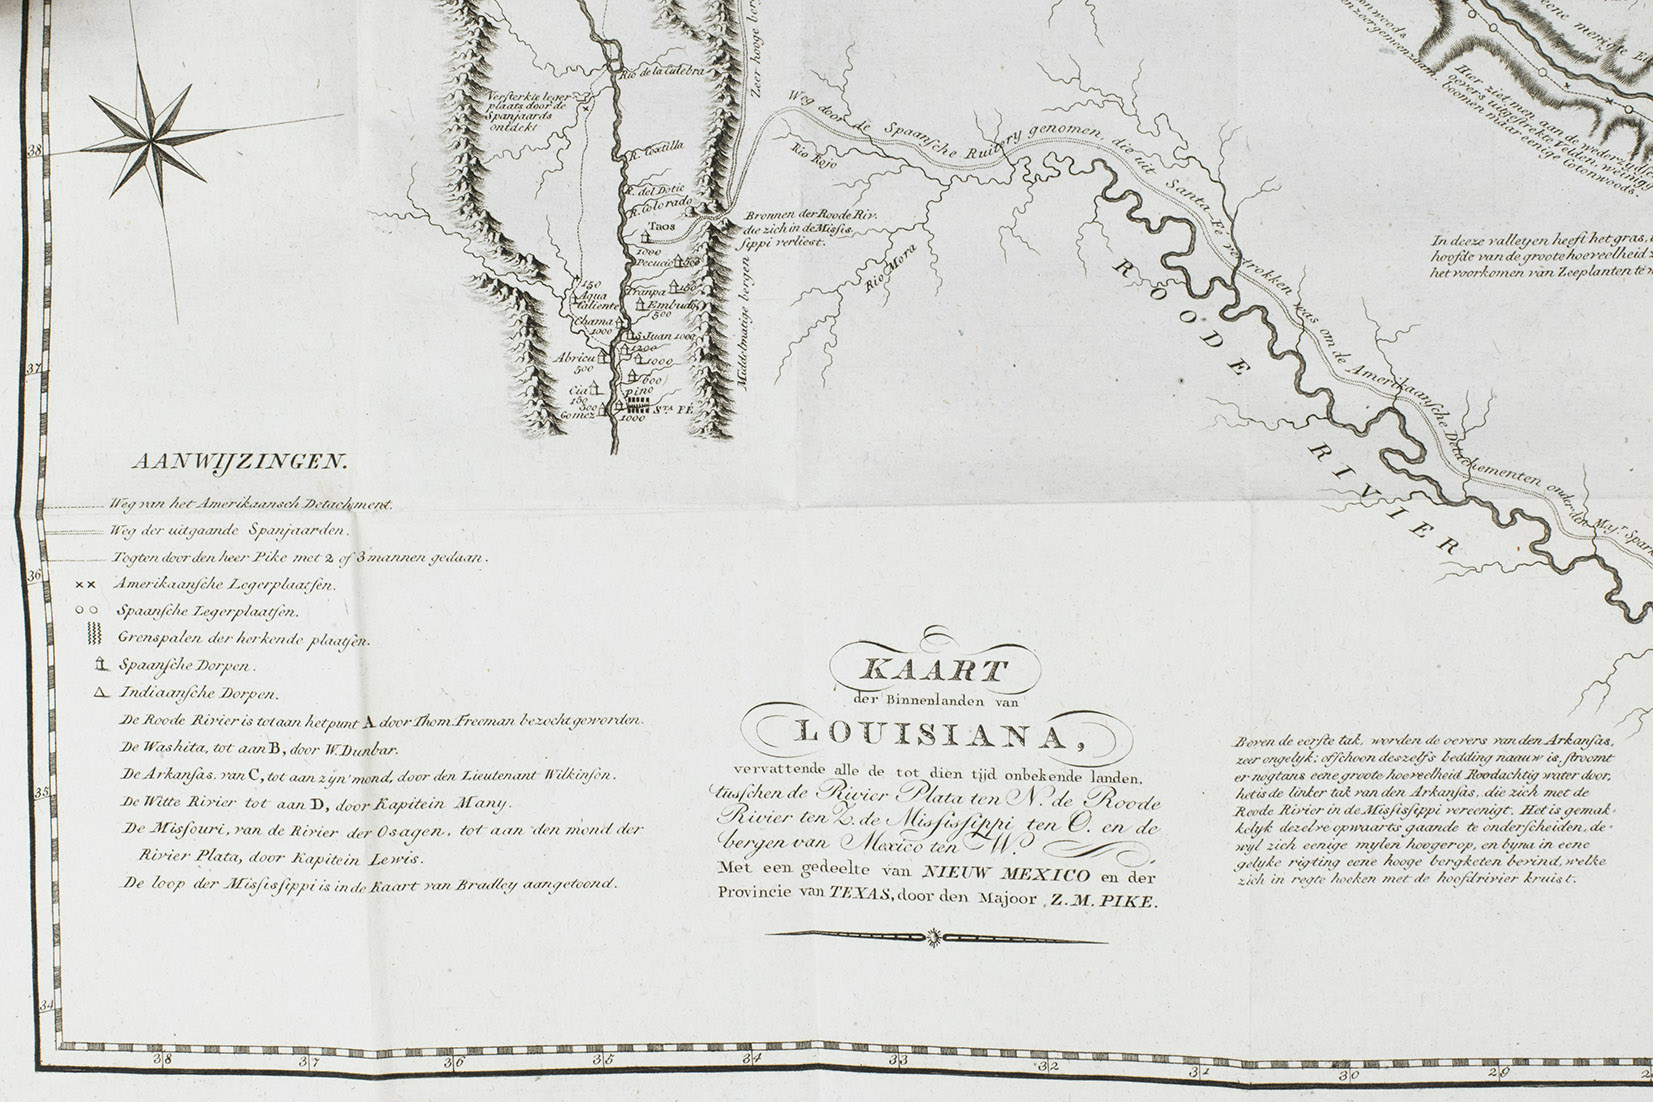 Zeer hooge ber
Rio de la Culebra
Versterkte leger-
plaats door de
Spanjaards
ontdekt
Weg door de Spaansche Ruitery genomen, die uit Santa Fé vertrokken was om de Amerikaansche Detachementen onder den Majr. Spark
Rio Rojo
38
R. del Dotie
R. Colorado
Taos
1000
Bronnen der Roode Riv.
die zich in de Missis
sippi verliest.
Rio Mora
Hier ziet men aan de wederzydse
oevers uitgestrekte velden, weinig
boomen maar eenige Cotonwoods.
eene menigte
en zeer gemeenzaam.
In deeze valleyen heeft het gras,
hoofde van de groote hoeveelheid
het voorkomen van Zeeplanten te
Pecucio 500
Tranpa 150
150
Aqua
Caliente
Embudo
500
Chama
1000
S. Juan 1000
1200
Abricu
500
1000
Cia
150
600
Pino
300
Gomez
STA FÉ
1000
Middelmatige bergen
37
ROODE
RIVIER
AANWIJZINGEN.
Weg van het Amerikaansch Detachment.
Weg der uitgaande Spanjaarden.
Togten door den heer Pike met 2 of 3 mannen gedaan.
36
Amerikaansche Legerplaatsen.
Spaansche Legerplaatsen.
Grenspalen der herkende plaatsen.
Spaansche Dorpen.
Indiaansche Dorpen.
De Roode Rivier is tot aan het punt A door Thom. Freeman bezocht geworden.
De Washita, tot aan B, door W. Dunbar.
De Arkansas, van C, tot aan zyn mond, door den Lieutenant Wilkinson.
De Witte Rivier tot aan D, door Kapitein Many.
35
De Missouri, van de Rivier der Osagen, tot aan den mond der
Rivier Plata, door Kapitein Lewis.
De loop der Missisippi is in de Kaart van Bradley aangetoond.
KAART
der Binnenlanden van
LOUISIANA,
vervattende alle de tot dien tijd onbekende landen,
tusschen de Rivier Plata ten N. de Roode
Rivier ten Z. de Missisippi ten O. en de
bergen van Mexico ten W.
Met een gedeelte van NIEUW MEXICO en der
Provincie van TEXAS, door den Majoor, Z. M. PIKE.
Boven de eerste tak, worden de oevers van den Arkansas,
zeer ongelyk: ofschoon deszelfs bedding naauw is, stroomt
er nogtans eene groote hoeveelheid Roodachtig water door,
het is de linker tak van den Arkansas, die zich met de
Roode Rivier in de Missisippi vereenigt. Het is gemak-
kelyk dezelve opwaarts gaande te onderscheiden, de-
wyl zich eenige mylen hoogerop, en byna in eene
gelyke rigting eene hooge bergketen bevind, welke
zich in regte hoeken met de hoofdrivier kruist.
34
38 37 36 35 34 33 32 31 30 29